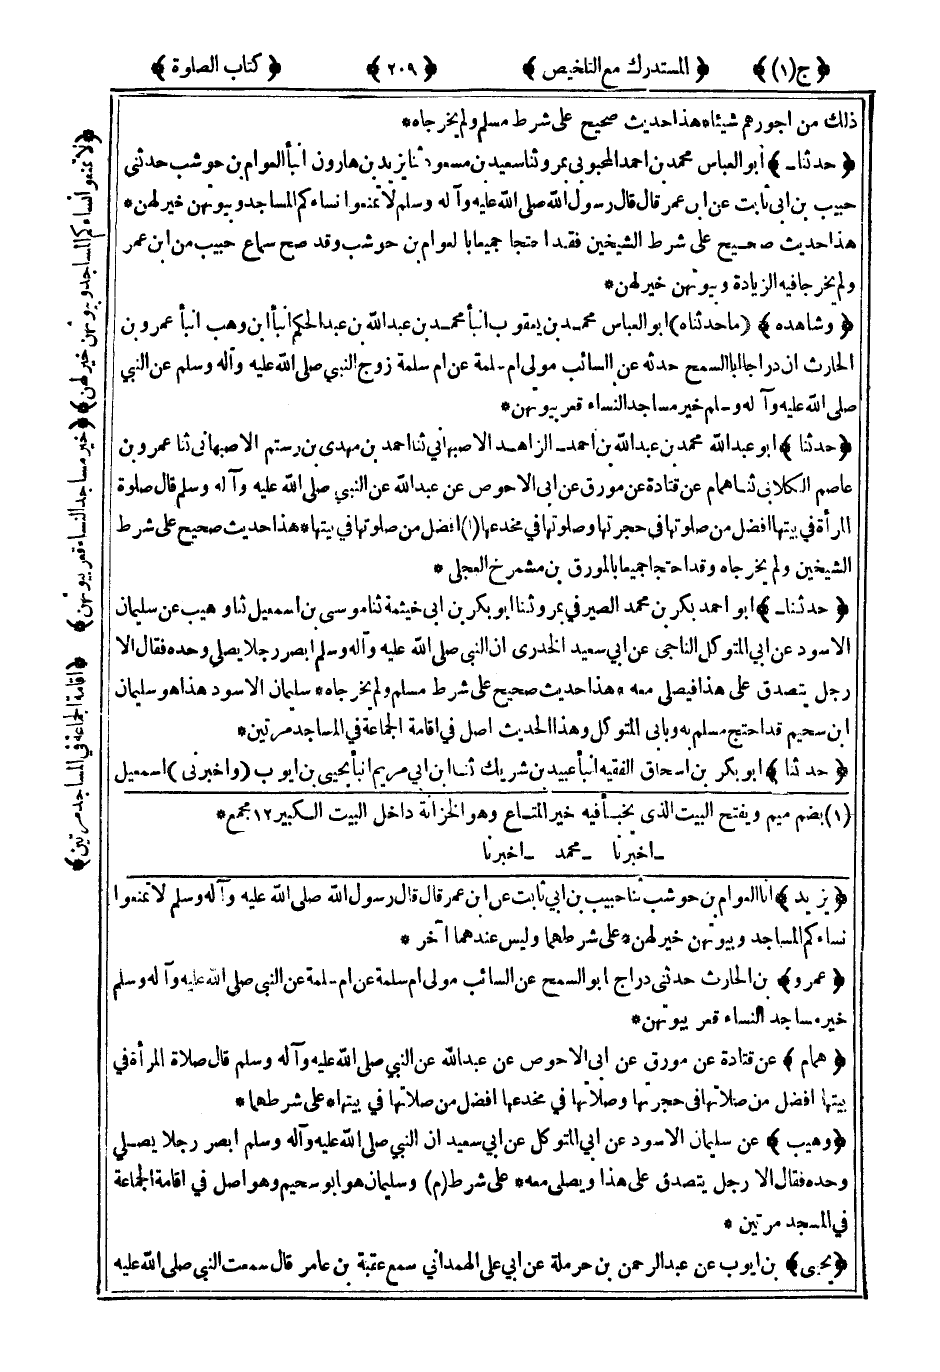 ﴿ ج(١) ﴾ ﴿ المستدرك مع التلخيص ﴾ ﴿ ٢٠٩ ﴾ ﴿ كتاب الصلوة ﴾
ذلك من اجورهم شيئا* هذا حديث صحيح على شرط مسلم ولم يخرجاه*
﴿ حدثنا ﴾ أبو العباس محمد بن احمد المحبوبى بمرو ثنا سعيد بن مسعود ثنا يزيد بن هارون انبأ العوام بن حوشب حدثنى
حبيب بن ابى ثابت عن ابن عمر قال قال رسول الله صلى الله عليه وآله وسلم لا تمنعوا نساءكم المساجد وبيوتهن خير لهن*
هذا حديث صحيح على شرط الشيخين فقد احتجا جميعا بالعوام بن حوشب وقد صح سماع حبيب من ابن عمر
ولم يخرجا فيه الزيادة وبيوتهن خير لهن*
﴿ وشاهده ﴾ (ما حدثناه) ابو العباس محمد بن يعقوب انبأ محمد بن عبد الله بن عبد الحكم انبأ ابن وهب انبأ عمرو بن
الحارث ان دراجا ابا السمح حدثه عن السائب مولى ام سلمة عن ام سلمة زوج النبي صلى الله عليه وآله وسلم عن النبي
صلى الله عليه وآله وسلم خير مساجد النساء قعر بيوتهن*
﴿ حدثنا ﴾ ابو عبد الله محمد بن عبد الله بن احمد الزاهد الاصبهانى ثنا احمد بن مهدى بن رستم الاصبهانى ثنا عمرو بن
عاصم الكلابى ثنا همام عن قتادة عن مورق عن ابى الاحوص عن عبد الله عن النبي صلى الله عليه وآله وسلم قال صلوة
المرأة فى بيتها افضل من صلوتها فى حجرتها وصلوتها فى مخدعها(١) افضل من صلوتها فى بيتها* هذا حديث صحيح على شرط
الشيخين ولم يخرجاه وقد احتجا جميعا بالمورق بن مشمرخ العجلى *
﴿ حدثنا ﴾ ابو احمد بكر بن محمد الصيرفى بمرو ثنا ابو بكر بن ابى خيثمة ثنا موسى بن اسمعيل ثنا وهيب عن سليمان
الاسود عن ابى المتوكل الناجى عن ابى سعيد الخدرى ان النبى صلى الله عليه وآله وسلم ابصر رجلا يصلى وحده فقال الا
رجل يتصدق على هذا فيصلى معه* هذا حديث صحيح على شرط مسلم ولم يخرجاه* سليمان الاسود هذا هو سليمان
ابن سحيم قد احتج مسلم به وبابى المتوكل وهذا الحديث اصل فى اقامة الجماعة فى المساجد مرتين*
﴿ حدثنا ﴾ ابو بكر بن اسحاق الفقيه انبأ عبيد بن شريك ثنا ابن ابى مريم انبأ يحيى بن ايوب (واخبرنى) اسمعيل
(١) بضم ميم ويفتح البيت الذى يخبأ فيه خير المتاع وهو الخزانة داخل البيت الكبير ١٢ مجمع*
ـ اخبرنا ـ محمد ـ اخبرنا
﴿ يزيد ﴾ انا العوام بن حوشب ثنا حبيب بن ابى ثابت عن ابن عمر قال قال رسول الله صلى الله عليه وآله وسلم لا تمنعوا
نساءكم المساجد وبيوتهن خير لهن* على شرطهما وليس عندهما آخر *
﴿ عمرو ﴾ بن الحارث حدثنى دراج ابو السمح عن السائب مولى ام سلمة عن ام سلمة عن النبى صلى الله عليه وآله وسلم
خير مساجد النساء قعر بيوتهن*
﴿ همام ﴾ عن قتادة عن مورق عن ابى الاحوص عن عبد الله عن النبي صلى الله عليه وآله وسلم قال صلاة المرأة فى
بيتها افضل من صلاتها فى حجرتها وصلاتها فى مخدعها افضل من صلاتها فى بيتها* على شرطهما*
﴿ وهيب ﴾ عن سليمان الاسود عن ابى المتوكل عن ابى سعيد ان النبى صلى الله عليه وآله وسلم ابصر رجلا يصلى
وحده فقال الا رجل يتصدق على هذا ويصلى معه* على شرط (م) وسليمان هو ابو سحيم وهو اصل فى اقامة الجماعة
فى المسجد مرتين *
﴿ يحيى ﴾ بن ايوب عن عبد الرحمن بن حرملة عن ابى على الهمدانى سمع عقبة بن عامر قال سمعت النبى صلى الله عليه
﴿ لا تمنعوا نساءكم المساجد وبيوتهن خير لهن ﴾ ﴿ خير مساجد النساء قعر بيوتهن ﴾ ﴿ اقامة الجماعة فى المساجد مرتين ﴾